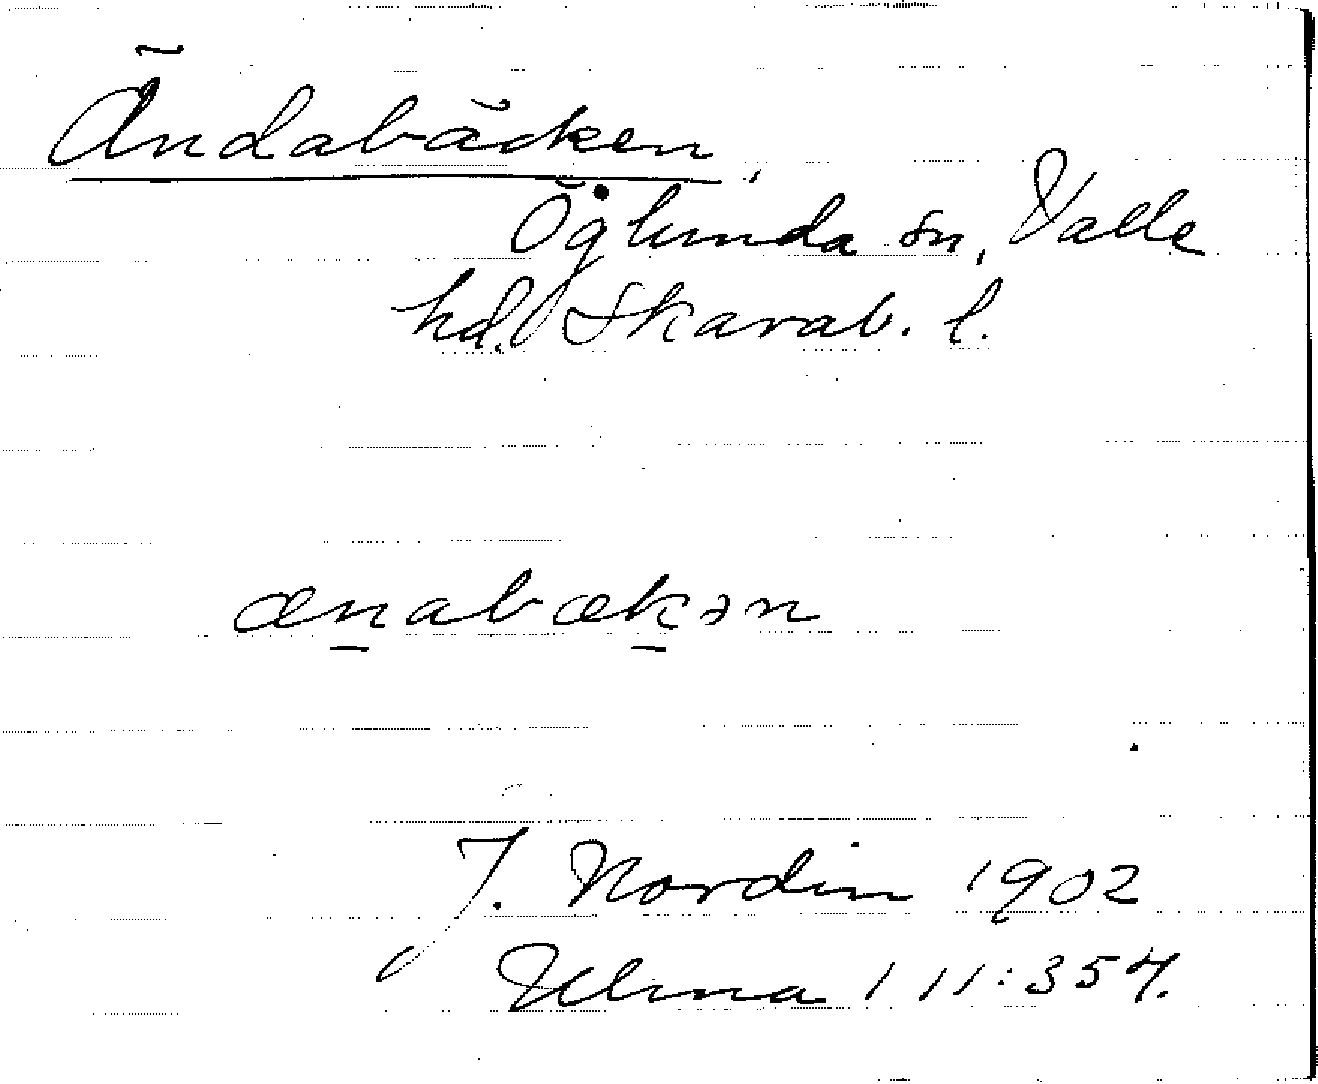 Ändabäcken,
Öglunda sn, Valle
hd. Skarab. l.
æn̲abæk̲ən
J. Nordin 1902
111:357.